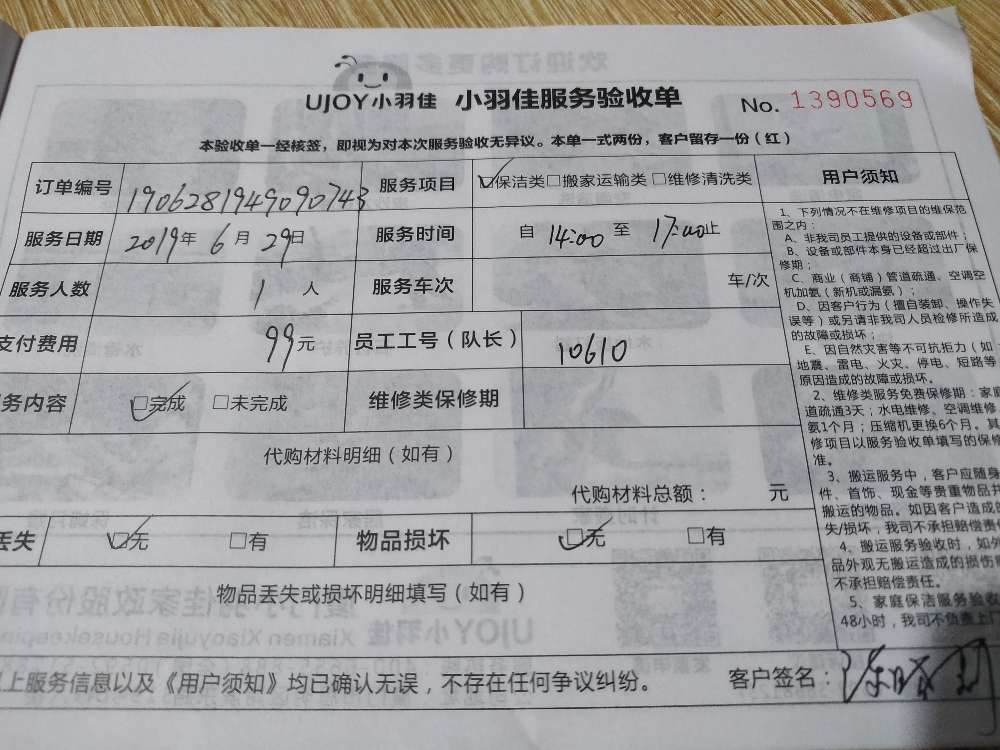 UJOY小羽佳 小羽佳服务验收单 No. 1390569
本验收单一经核签，即视为对本次服务验收无异议。本单一式两份，客户留存一份（红）
订单编号 1906281949090743 服务项目 保洁类 □搬家运输类 □维修清洗类
服务日期 2019年6月29日 服务时间 自 14:00 至 17:00止
服务人数 1 人 服务车次 车/次
支付费用 99元 员工工号（队长） 10610
务内容 □完成 □未完成 维修类保修期
代购材料明细（如有）
代购材料总额： 元
丢失 □无 □有 物品损坏 □无 □有
物品丢失或损坏明细填写（如有）
上服务信息以及《用户须知》均已确认无误，不存在任何争议纠纷。 客户签名：
用户须知
1、下列情况不在维修项目的维保范
围之内：
A、非我司员工提供的设备或部件；
B、设备或部件本身已经超过出厂保
修期；
C、商业（商铺）管道疏通、空调空
机加氨（新机或漏氨）；
D、因客户行为（擅自装卸、操作失
误等）或另请非我司人员检修所造成
的故障或损坏；
E、因自然灾害等不可抗拒力（如
地震、雷电、火灾、停电、短路等
原因造成的故障或损坏。
2、维修类服务免费保修期：家庭
道疏通3天；水电维修、空调维修
氨1个月；压缩机更换6个月。其
修项目以服务验收单填写的保修
准。
3、搬运服务中，客户应随身
件、首饰、现金等贵重物品并
搬运的物品。如因客户造成的
失/损坏，我司不承担赔偿责任
4、搬运服务验收时，如外
品外观无搬运造成的损伤
不承担赔偿责任。
5、家庭保洁服务验收
48小时，我司不负责上门